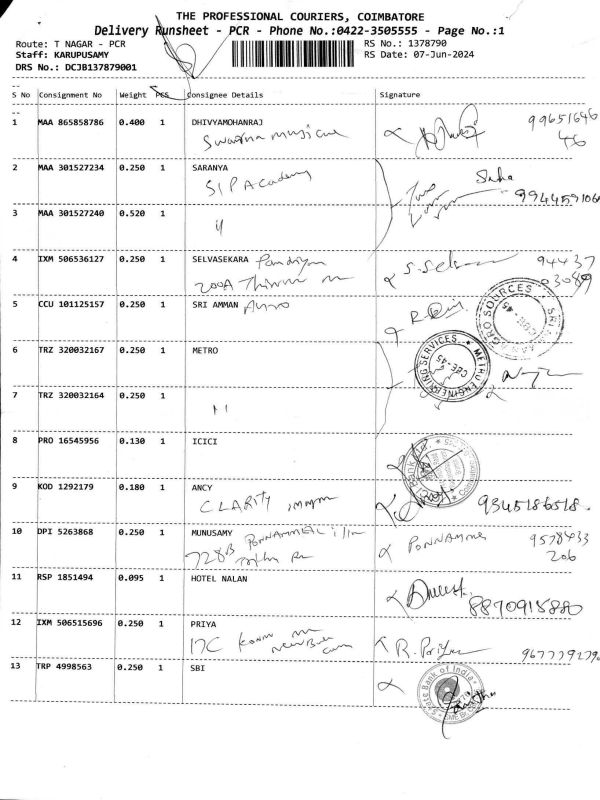 THE PROFESSIONAL COURIERS, COIMBATORE
Delivery Runsheet - PCR - Phone No.:0422-3505555 - Page No.:1
Route: T NAGAR - PCR RS No.: 1378790
Staff: KARUPUSAMY RS Date: 07-Jun-2024
DRS No.: DCJB137879001
S No Consignment No Weight PCS Consignee Details Signature
1 MAA 865858786 0.400 1 DHIVYAMOHANRAJ 99651646
46
2 MAA 301527234 0.250 1 SARANYA
SIP Academy
3 MAA 301527240 0.520 1 "
4 IXM 506536127 0.250 1 SELVASEKARA S.Sel 94437
200A 03089
5 CCU 101125157 0.250 1 SRI AMMAN
AGRO SOURCES
CBE-45
6 TRZ 320032167 0.250 1 METRO
METRO ENGINEERING SERVICES
CBE-45
7 TRZ 320032164 0.250 1 "
8 PRO 16545956 0.130 1 ICICI
9 KOD 1292179 0.180 1 ANCY
CLARITY 9345186518
10 DPI 5263868 0.250 1 MUNUSAMY PONNAMMAL 9578433
728B 206
11 RSP 1851494 0.095 1 HOTEL NALAN
8870915880
12 IXM 506515696 0.250 1 PRIYA
17C R. Priya
13 TRP 4998563 0.250 1 SBI
State Bank of India